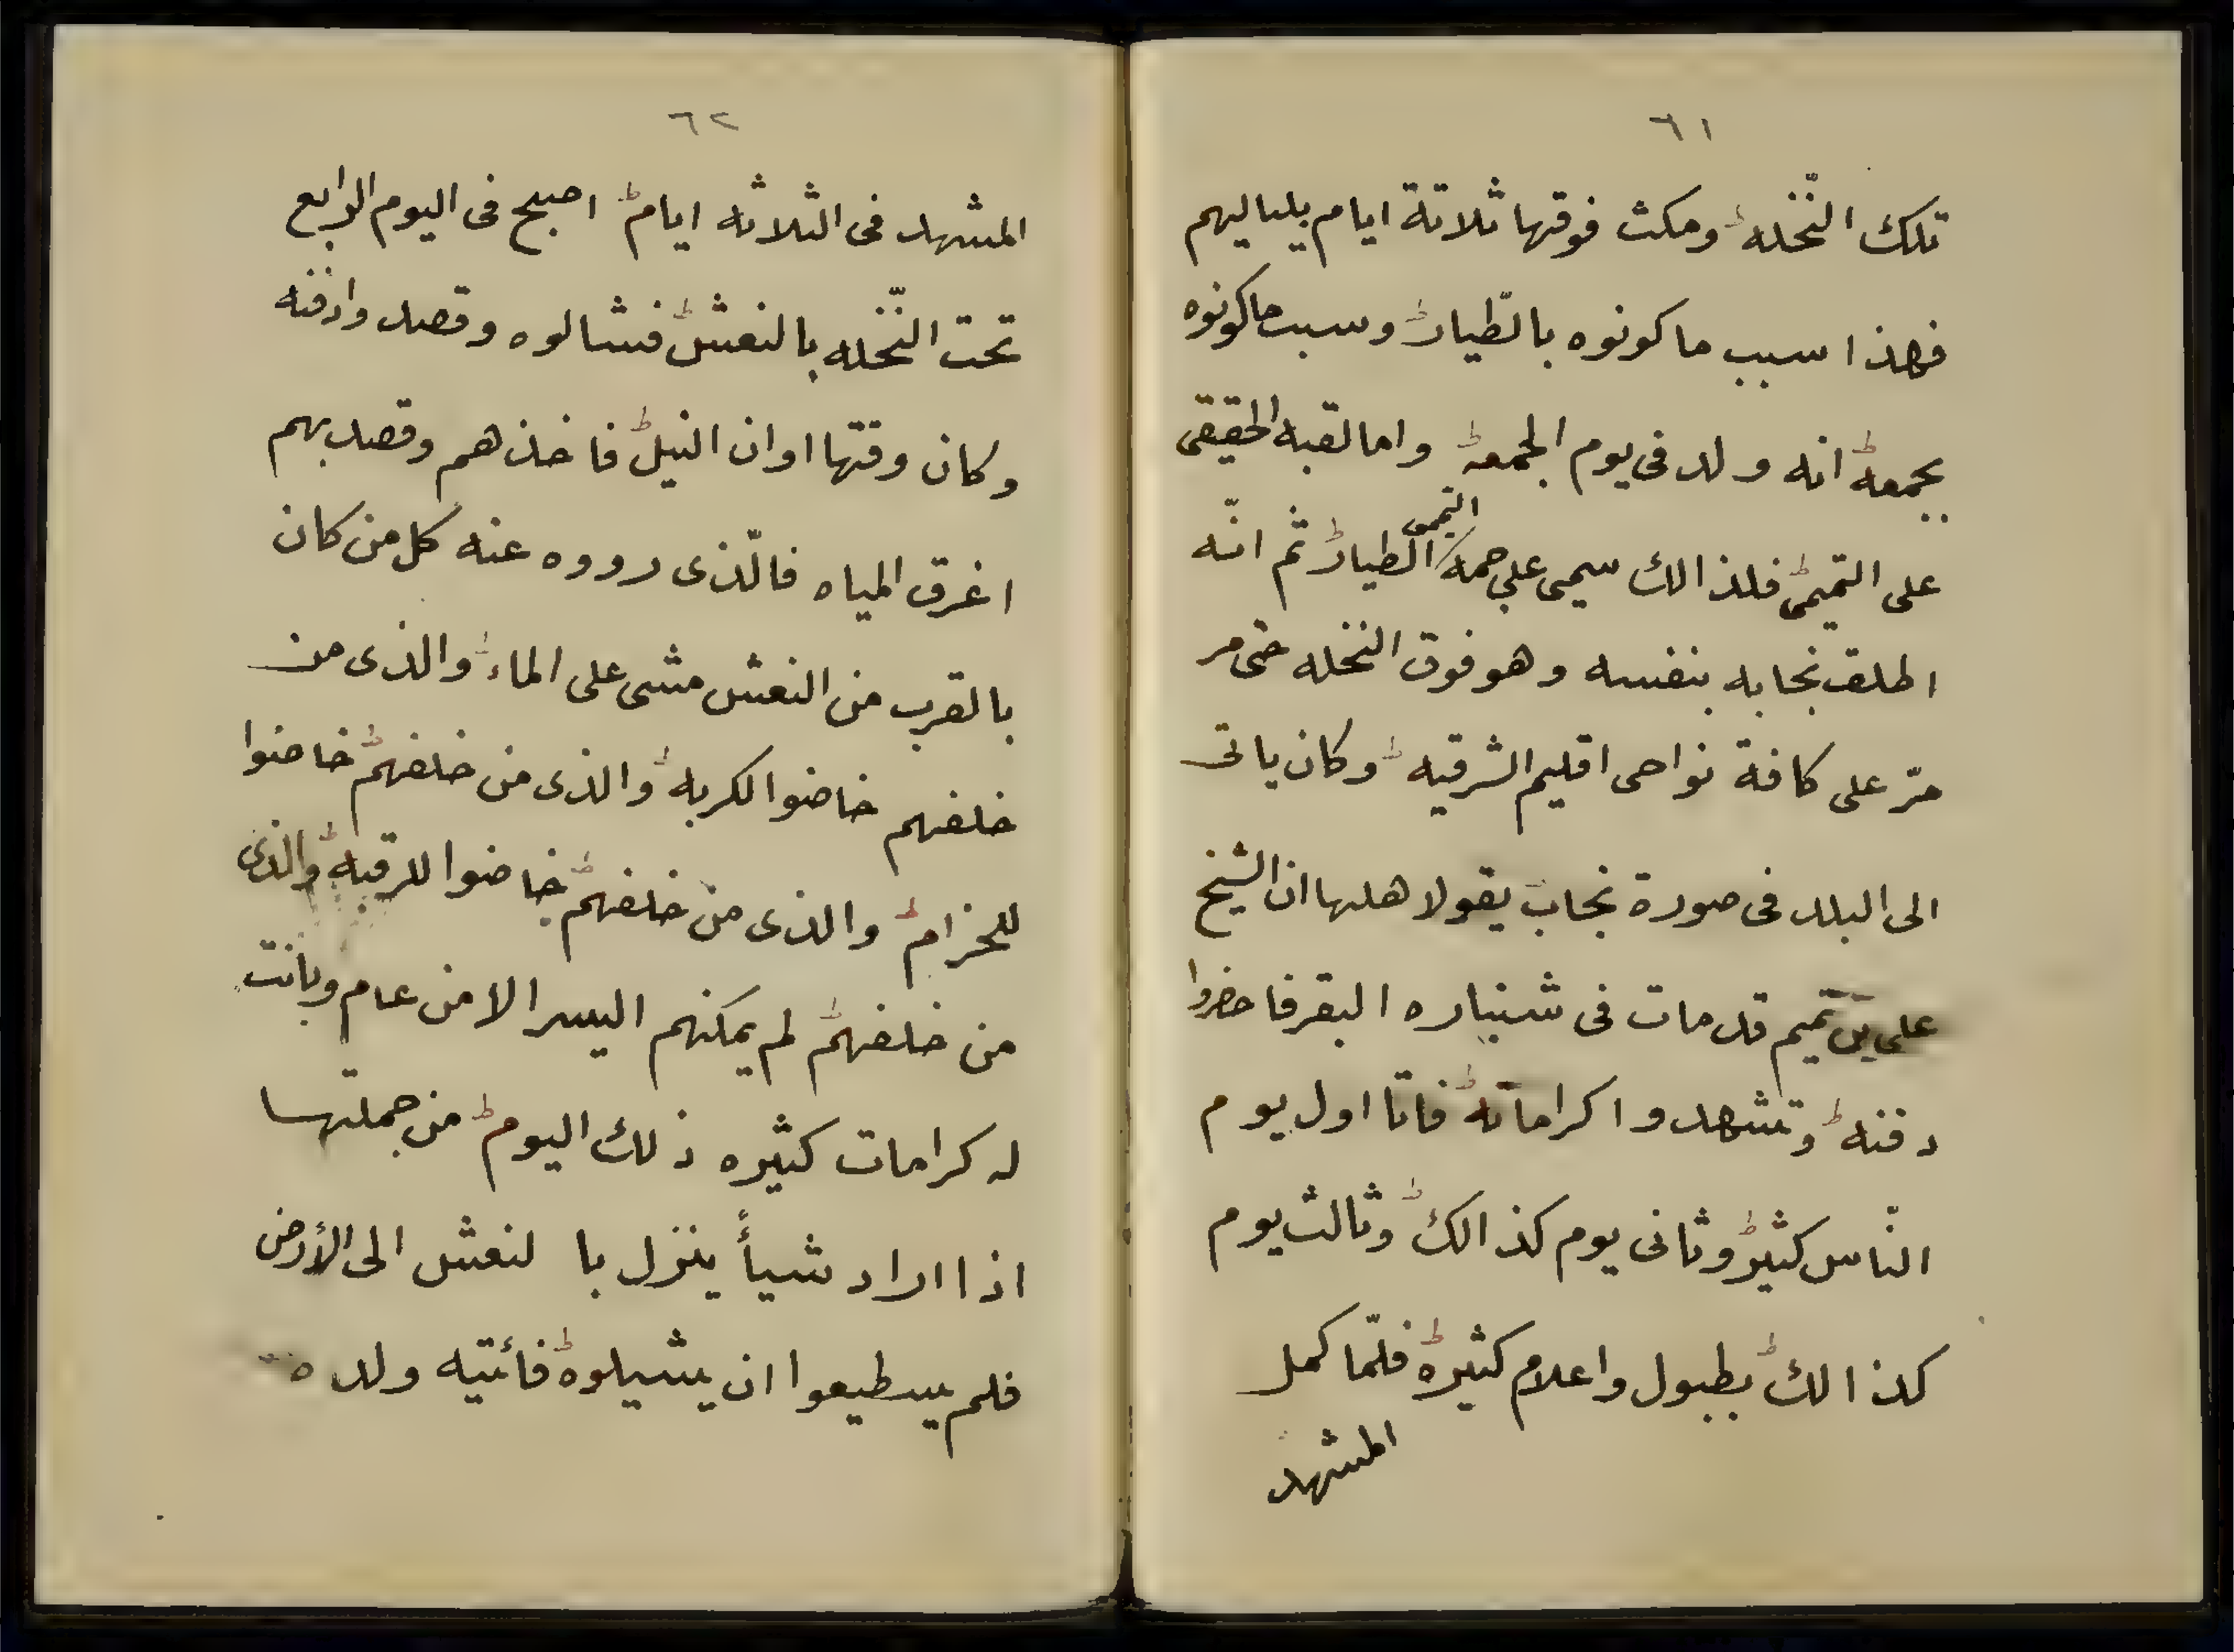 ٦١
تلك النّخله ومكث فوقها ثلاثة ايام بلياليهم
فهذا سبب ماكونوه بالطّيار وسبب ماكونوه
بجمعه انه ولد فى يوم الجمعه واما لقبه الحقيقى
على التميمى فلذالك سيمى على جمه الطيار ثم انّه
التميمى
اطلق نجابه بنفسه وهو فوق النخله حتى مر
مرّ على كافة نواحى اقليم الشرقيه وكان ياتى
الى البلد فى صورة نجاب يقول لاهلها ان الشيخ
على بن تميم قد مات فى شنباره البقر فاحضروا
دفنه وتشهدوا كراماته فاتا اول يوم
النّاس كثير وثانى يوم كذالك وثالث يوم
كذالك بطبول واعلام كثيره فلمّا كمل
المشهد
٦٢
المشهد فى الثلاثه ايام اصبح فى اليوم الرابع
تحت النّخله بالنعش فشالوه وقصدوا دفنه
وكان وقتها اوان النيل فاخذهم وقصد بهم
اغرق المياه فالّذى رووه عنه كل من كان
بالقرب من النعش مشى على الماء والذى من
خلفهم خاضوا لكربه والذى من خلفهم خاضوا
للحزام والذى من خلفهم خاضوا للرقبه والذى
من خلفهم لم يمكنهم اليسر الا من عام وبانت
له كرامات كثيره ذلك اليوم من جملتها
اذا اراد شيأ ينزل با لنعش الى الأرض
فلم يسطيعوا ان يشيلوه فائتيه ولده